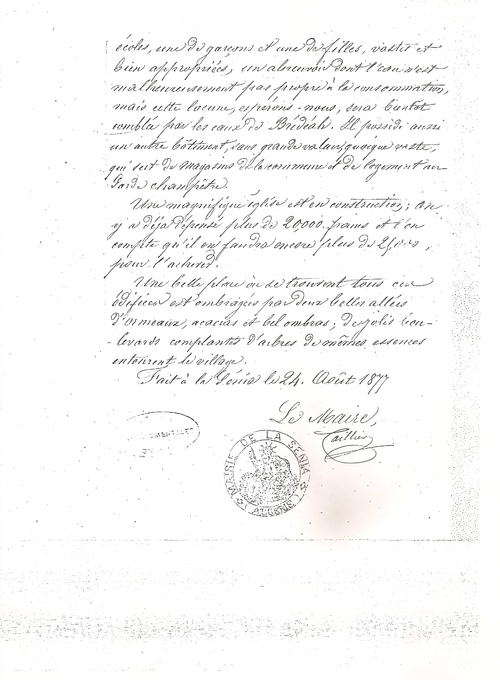 écoles, une de garçons et une de filles, vastes et
bien appropriées, un abreuvoir dont l'eau n'est
malheureusement pas propre à la consommation,
mais cette lacune, espérons-nous, sera bientôt
comblée par les eaux de Brédéah. Il possède aussi
un autre bâtiment, sans grande valeur, quoique vaste,
qui sert de magasins de la commune et de logement au
Garde champêtre.
Une magnifique église est en construction; on
y a déjà dépensé plus de 20,000 francs et l'on
compte qu'il en faudra encore plus de
pour l'achever.
Une belle place où se trouvent tous ces
édifices est ombragée par deux belles allées
d'ormeaux, acacias et bel ombras; de jolis bou-
-levards complantés d'arbres de mêmes essences
entourent le village.
Fait à la Sénia le 24 Août 1877
Le Maire,
MAIRIE DE LA SENIA
(ALGERIE)